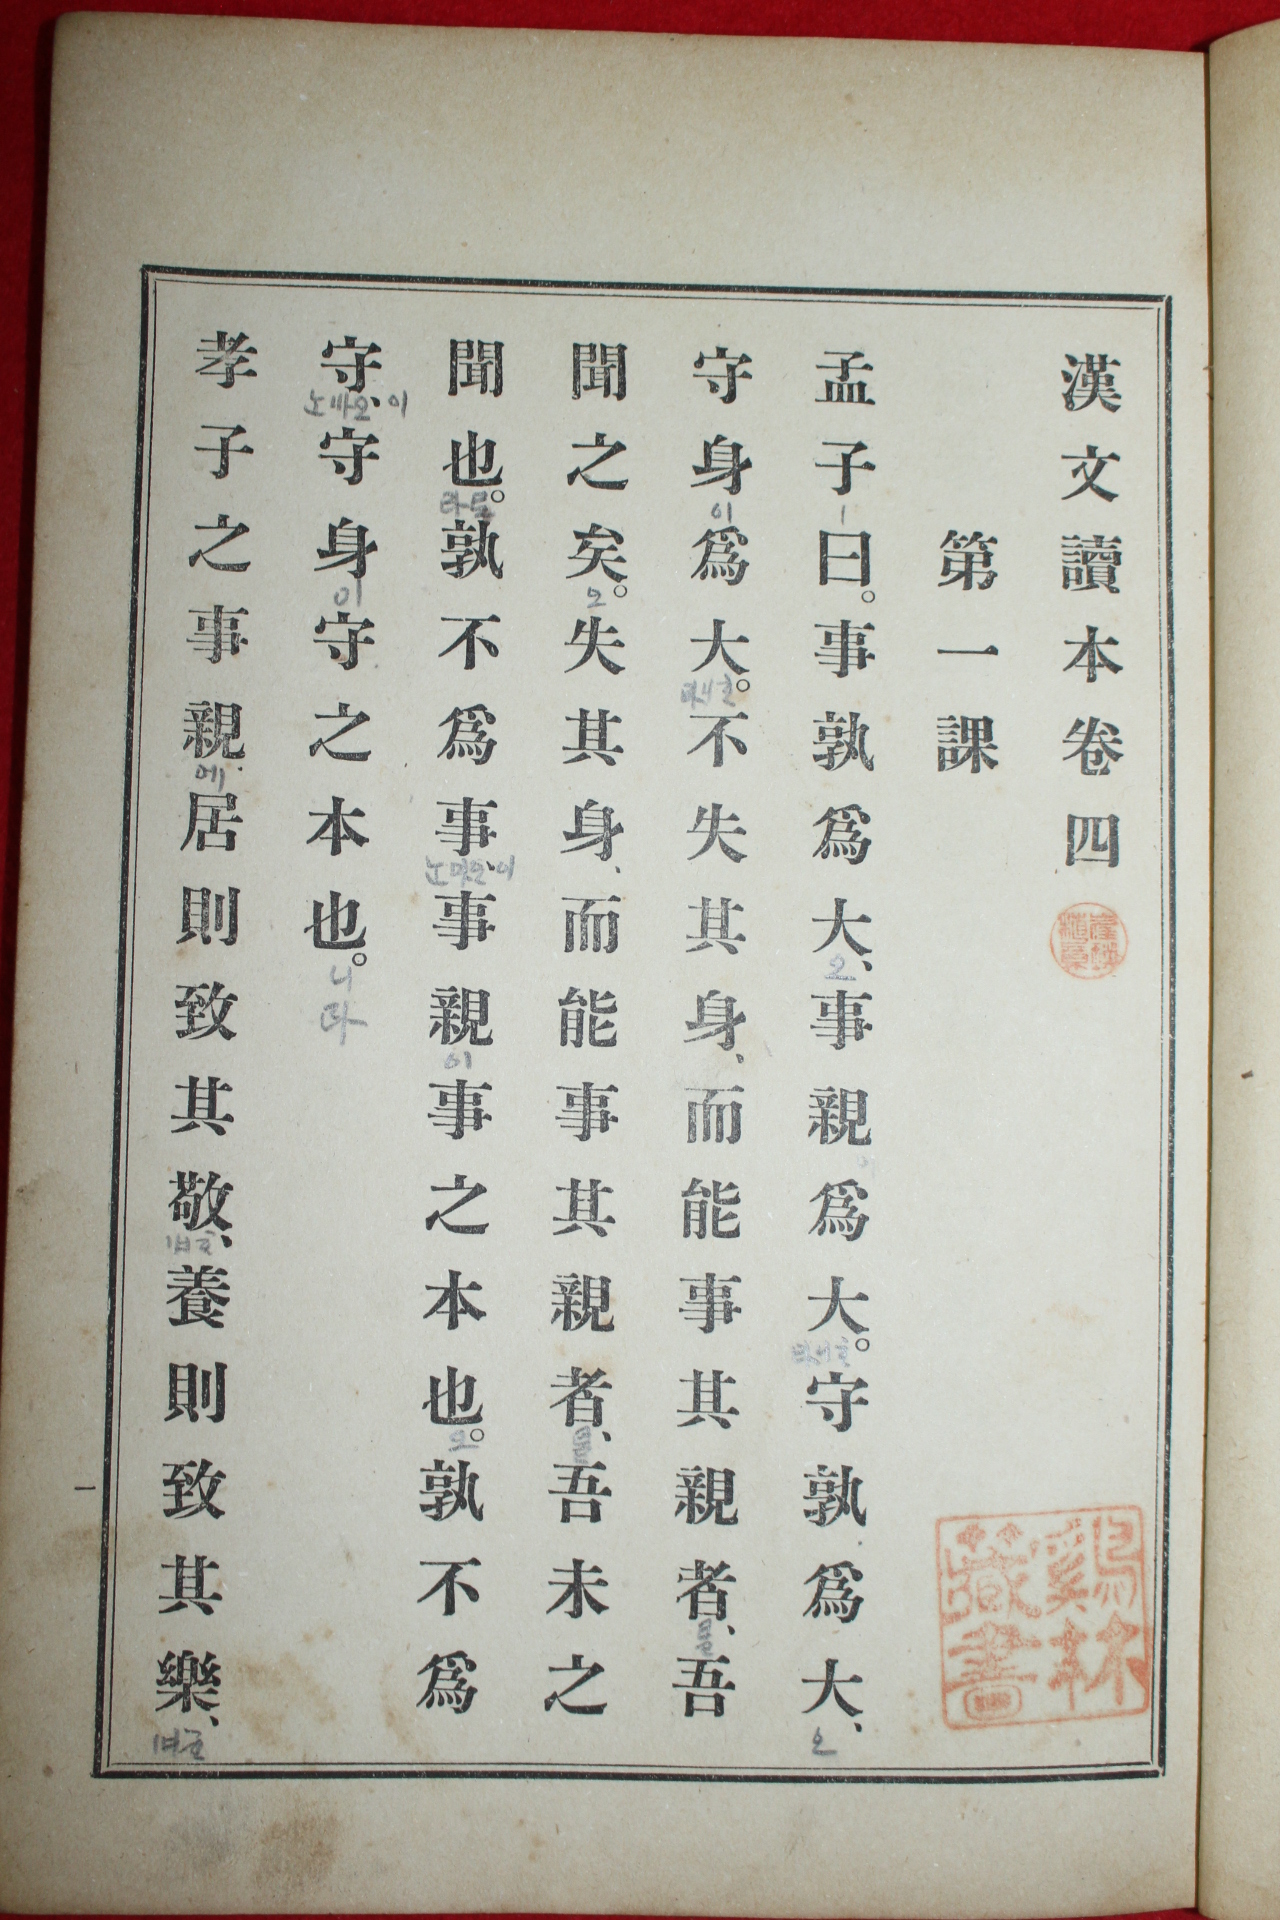 漢文讀本卷四
第一課
孟子曰。事孰爲大、事親爲大。守孰爲大、
守身爲大。不失其身、而能事其親者、吾
聞之矣。失其身、而能事其親者、吾未之
聞也。孰不爲事、事親事之本也。孰不爲
守、守身守之本也。
孝子之事親居則致其敬、養則致其樂、
一
鷄林
藏書